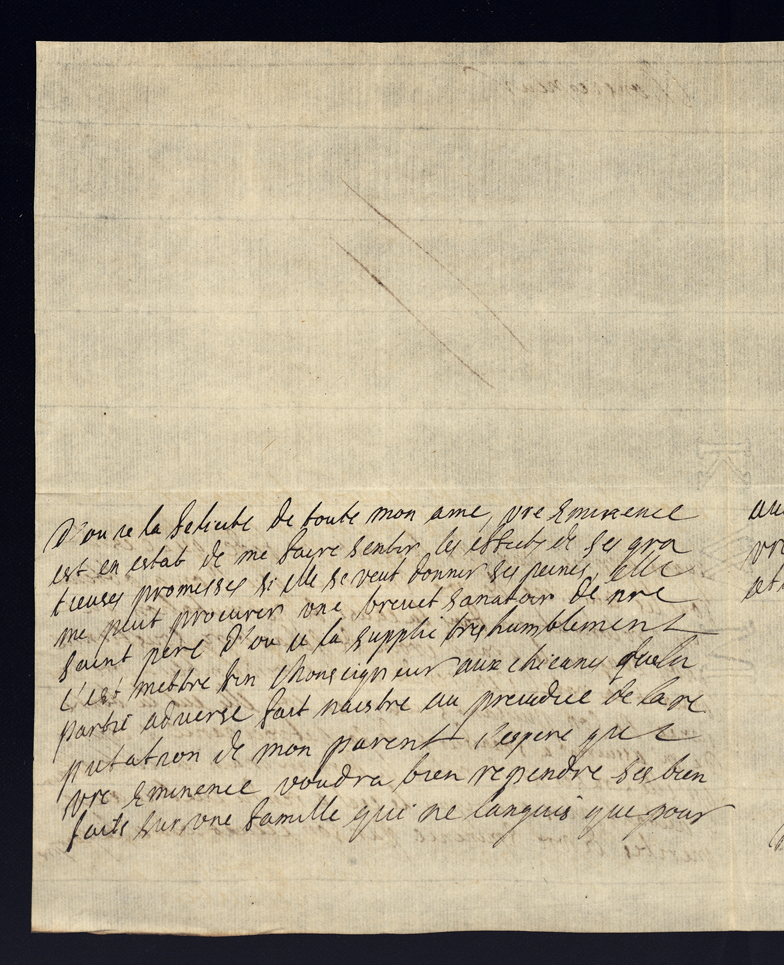 D'ou ie la felicite de toute mon ame, vre Eminence
est en estat de me faire sentir les effects de ses gra
tieuses promesses si elle se veut donner ses peines, elle
me peut procurer vne brevet sanatoir de nre
saint pere D'ou ie la supplie tres humblement
c'est mettre fin Monseigneur aux chicanes que la
partie adverse fait naistre au preiudice de la re
putation de mon parent i'espere que
vre Eminence voudra bien rependre ses bien
faits sur vne famille qui ne languis que pour